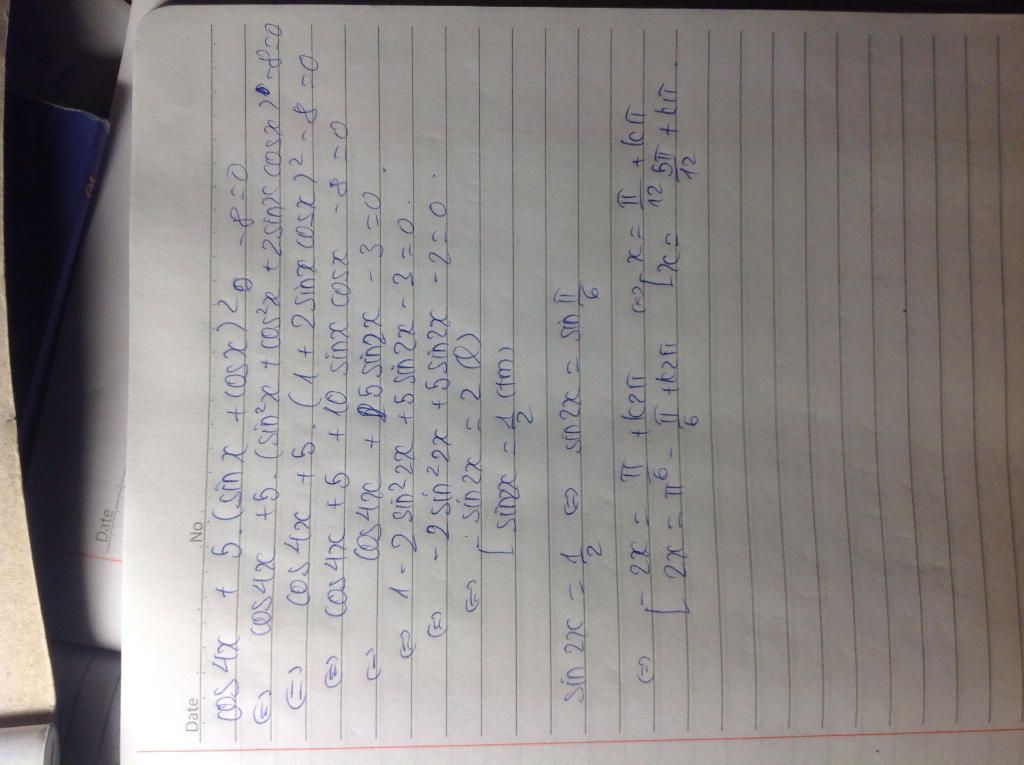 Date
Date No
cos4x + 5.(sinx + cosx)² - 8 = 0
⇔ cos4x + 5.(sin²x + cos²x + 2sinx cosx) - 8 = 0
⇔ cos4x + 5.(1 + 2sinx cosx) - 8 = 0
⇔ cos4x + 5 + 10 sinx cosx - 8 = 0
⇔ cos4x + 5 sin2x - 3 = 0.
⇔ 1 - 2sin²2x + 5sin2x - 3 = 0.
⇔ -2sin²2x + 5sin2x - 2 = 0.
⇔ [ sin2x = 2 (l)
[ sin2x = 1/2 (tm)
sin2x = 1/2 ⇔ sin2x = sin π/6
⇔ [ 2x = π/6 + k2π ⇔ [ x = π/12 + kπ
[ 2x = π - π/6 + k2π [ x = 5π/12 + kπ.